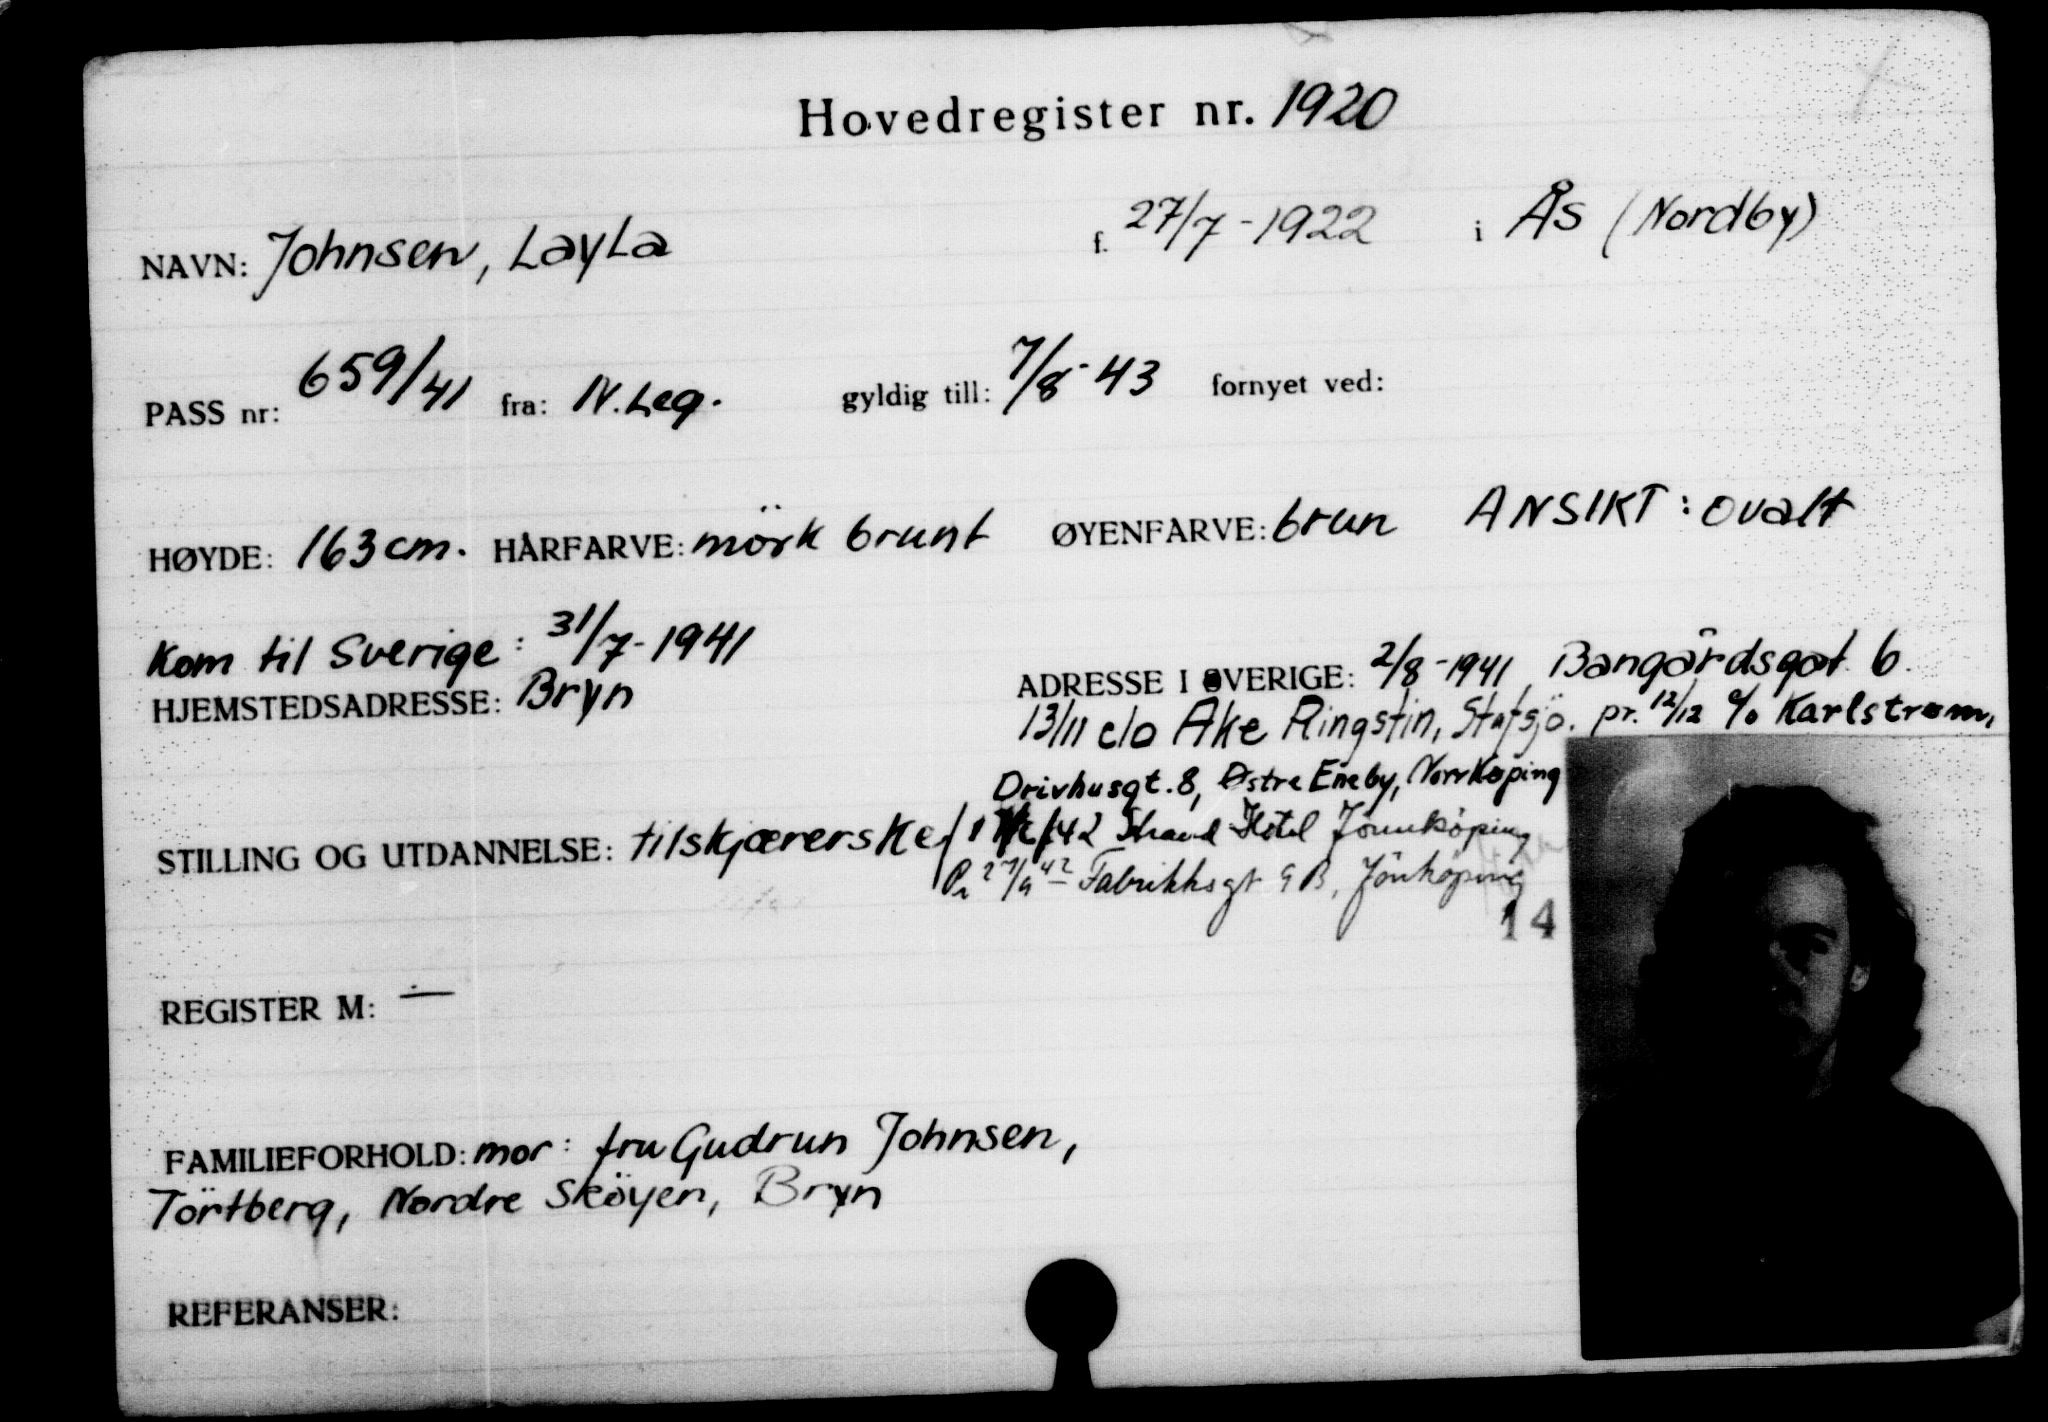 Hovedregister nr. 1920
NAVN: Johnsen, Layla f. 27/7-1922 i Ås (Nordby)
PASS nr: 659/41 fra: N. Leg. gyldig till: 7/8-43 fornyet ved:
HØYDE: 163 cm. HÅRFARVE: mörk brunt ØYENFARVE: brun ANSIKT: ovalt
Kom til Sverige: 31/7-1941
HJEMSTEDSADRESSE: Bryn ADRESSE I SVERIGE: 2/8-1941 Bangårdsgat 6.
13/11 c/o Åke Ringstin, Stafsjö. pr. 12/12 c/o Karlstrøm,
Drivhusgt. 8, Østre Eneby, Norrkøping
STILLING OG UTDANNELSE: tilskjærerske /42 Strand Hotel Jönnköping
Pr 27/9 42 Fabrikksgt 9B, Jönköping
14
REGISTER M: —
FAMILIEFORHOLD: mor: fru Gudrun Johnsen,
Törtberg, Nordre Sköyen, Bryn
REFERANSER: